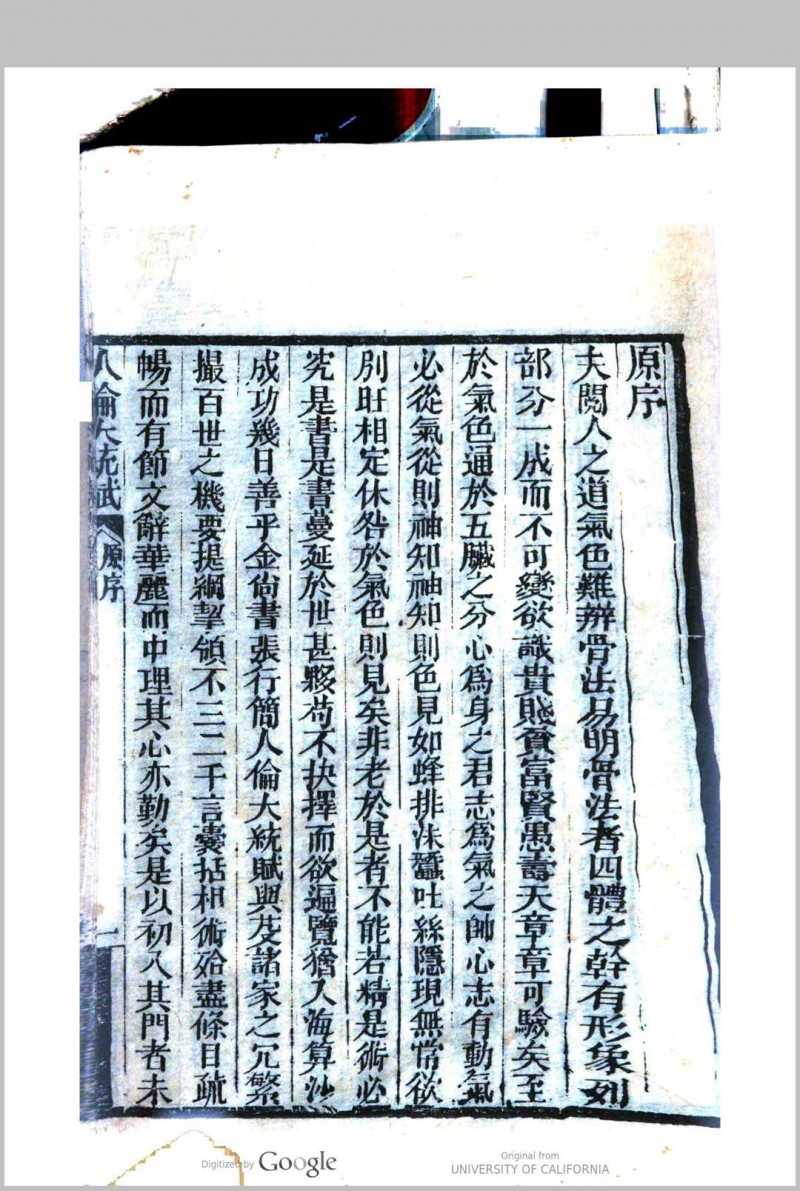 原序
夫閱人之道氣色難辨骨法易明骨法者四體之幹有形象列
部分一成而不可變欲識貴賤貧富賢愚壽夭章章可驗矣至
於氣色通於五臟之分心爲身之君志爲氣之帥心志有動氣
必從氣從則神知神知則色見如蜂排沫蠶吐絲隱現無常欲
別旺相定休咎於氣色則見矣非老於是者不能若精是術必
究是書是書蔓延於世甚夥苟不抉擇而欲遍覽猶入海算沙
成功幾日善乎金尙書張行簡人倫大統賦與芟諸家之冗繁
撮百世之機要提綱挈領不三二千言囊括相術殆盡條目疏
暢而有節文辭華麗而中理其心亦勤矣是以初入其門者未
人倫大統賦 原序
一
Digitized by Google
Original from
UNIVERSITY OF CALIFORNIA